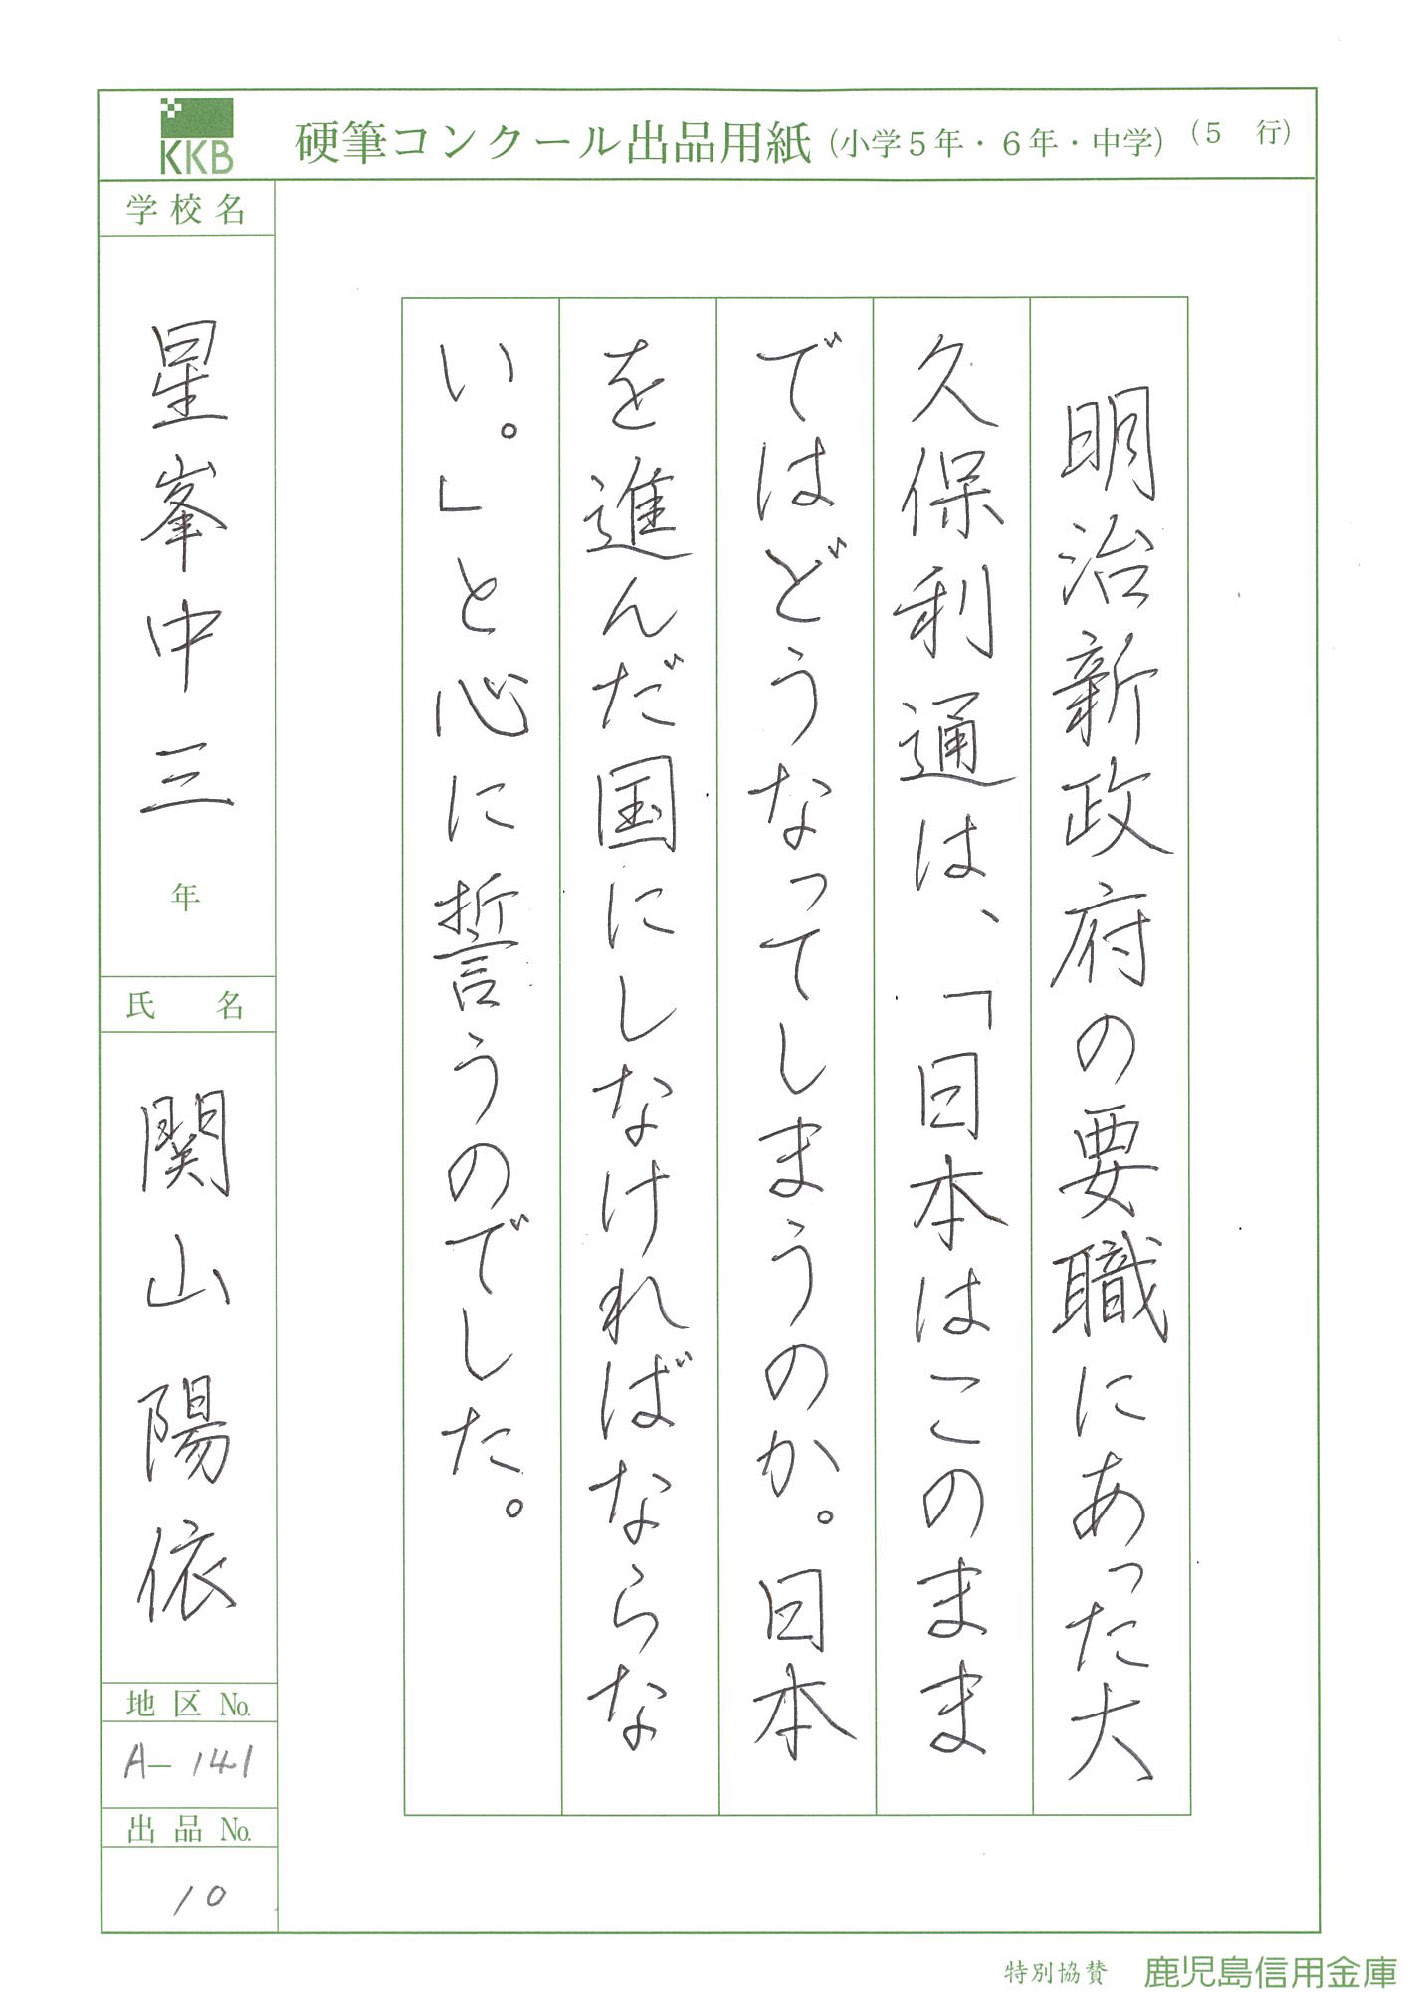 KKB
硬筆コンクール出品用紙(小学5年・6年・中学)(5 行)
明治新政府の要職にあった大
久保利通は、「日本はこのまま
ではどうなってしまうのか。日本
を進んだ国にしなければならな
い。」と心に誓うのでした。
学校名
星峯中三年
氏 名
関山陽依
地区 No.
A-141
出品 No.
10
特別協賛 鹿児島信用金庫